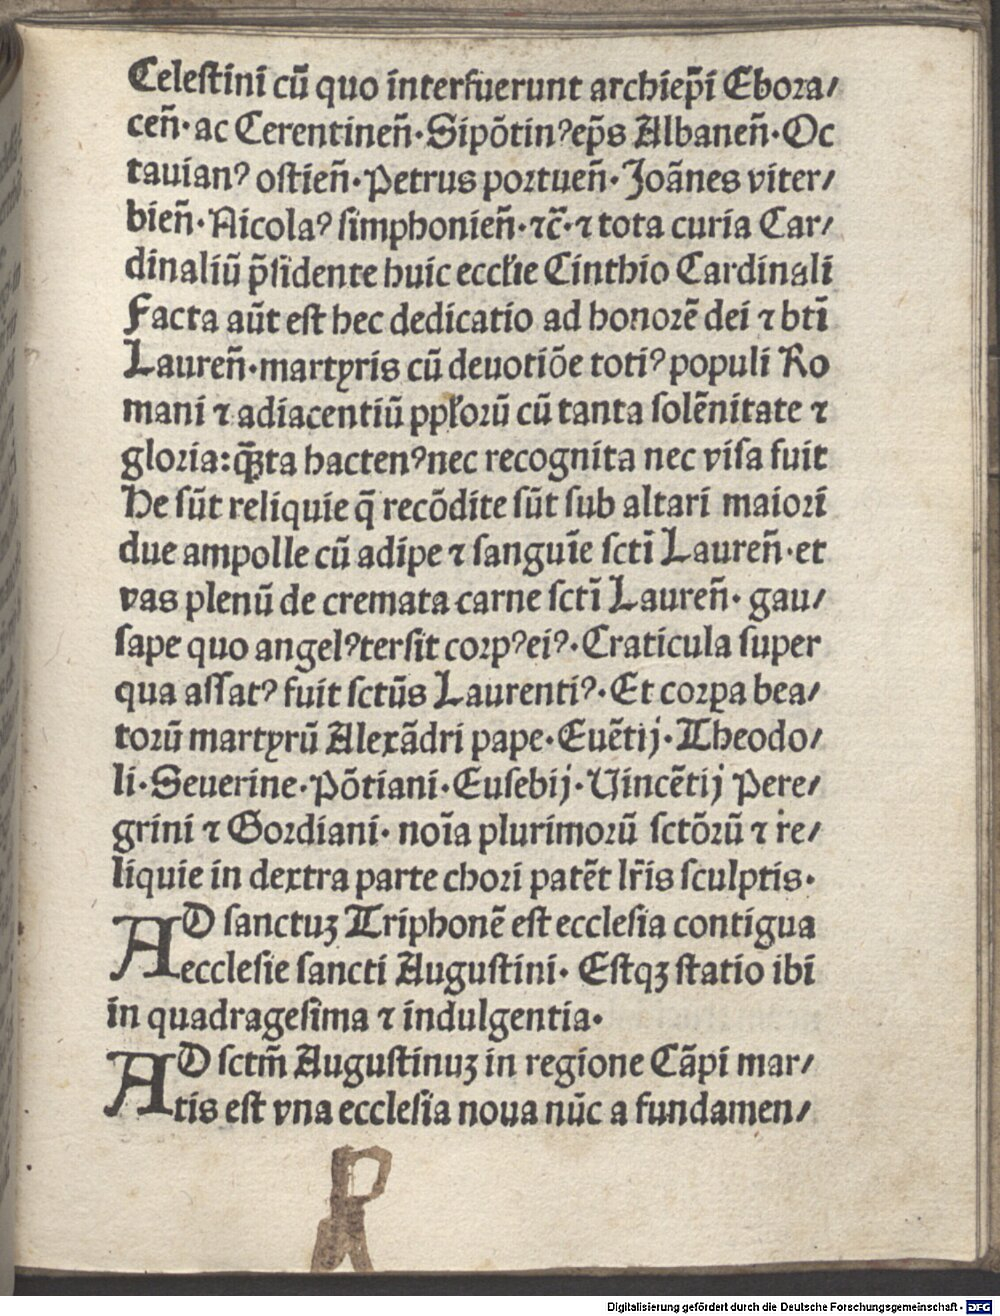 Celestini cū quo interfuerunt archiep̄i Ebora/
ceñ· ac Cerentineñ· Sipōtinꝰ ep̄s Albaneñ· Oc
tauianꝰ ostieñ· Petrus portueñ· Joānes viter/
bieñ· Nicolaꝰ simphonieñ· ⁊c̄· ⁊ tota curia Car/
dinaliū p̄sidente huic eccl̄ie Cinthio Cardinali
Facta aūt est hec dedicatio ad honorē dei ⁊ btī
Laureñ· martyris cū deuotiōe totiꝰ populi Ro
mani ⁊ adiacentiū ppl̄orū cū tanta solēnitate ⁊
gloria: q̄ꝫta hactenꝰ nec recognita nec visa fuit
He sūt reliquie q̄ recōdite sūt sub altari maiori
due ampolle cū adipe ⁊ sanguīe sctī Laureñ· et
vas plenū de cremata carne sctī Laureñ· gau/
sape quo angelꝰ tersit corpꝰ eiꝰ· Craticula super
qua assatꝰ fuit sctūs Laurentiꝰ· Et corꝑa bea/
torū martyrū Alexādri pape· Euētij· Theodo/
li· Seuerine· Pōtiani· Eusebij· Vincētij Pere/
grini ⁊ Gordiani· noīa plurimorū sctōrū ⁊ re/
liquie in dextra parte chori patēt lr̄is sculptis·
AD sanctuꝫ Triphonē est ecclesia contigua
ecclesie sancti Augustini· Estqꝫ statio ibi
in quadragesima ⁊ indulgentia·
AD sctm̄ Augustinuꝫ in regione Cāpi mar/
tis est vna ecclesia noua nūc a fundamen/
R
Digitalisierung gefördert durch die Deutsche Forschungsgemeinschaft - DFG